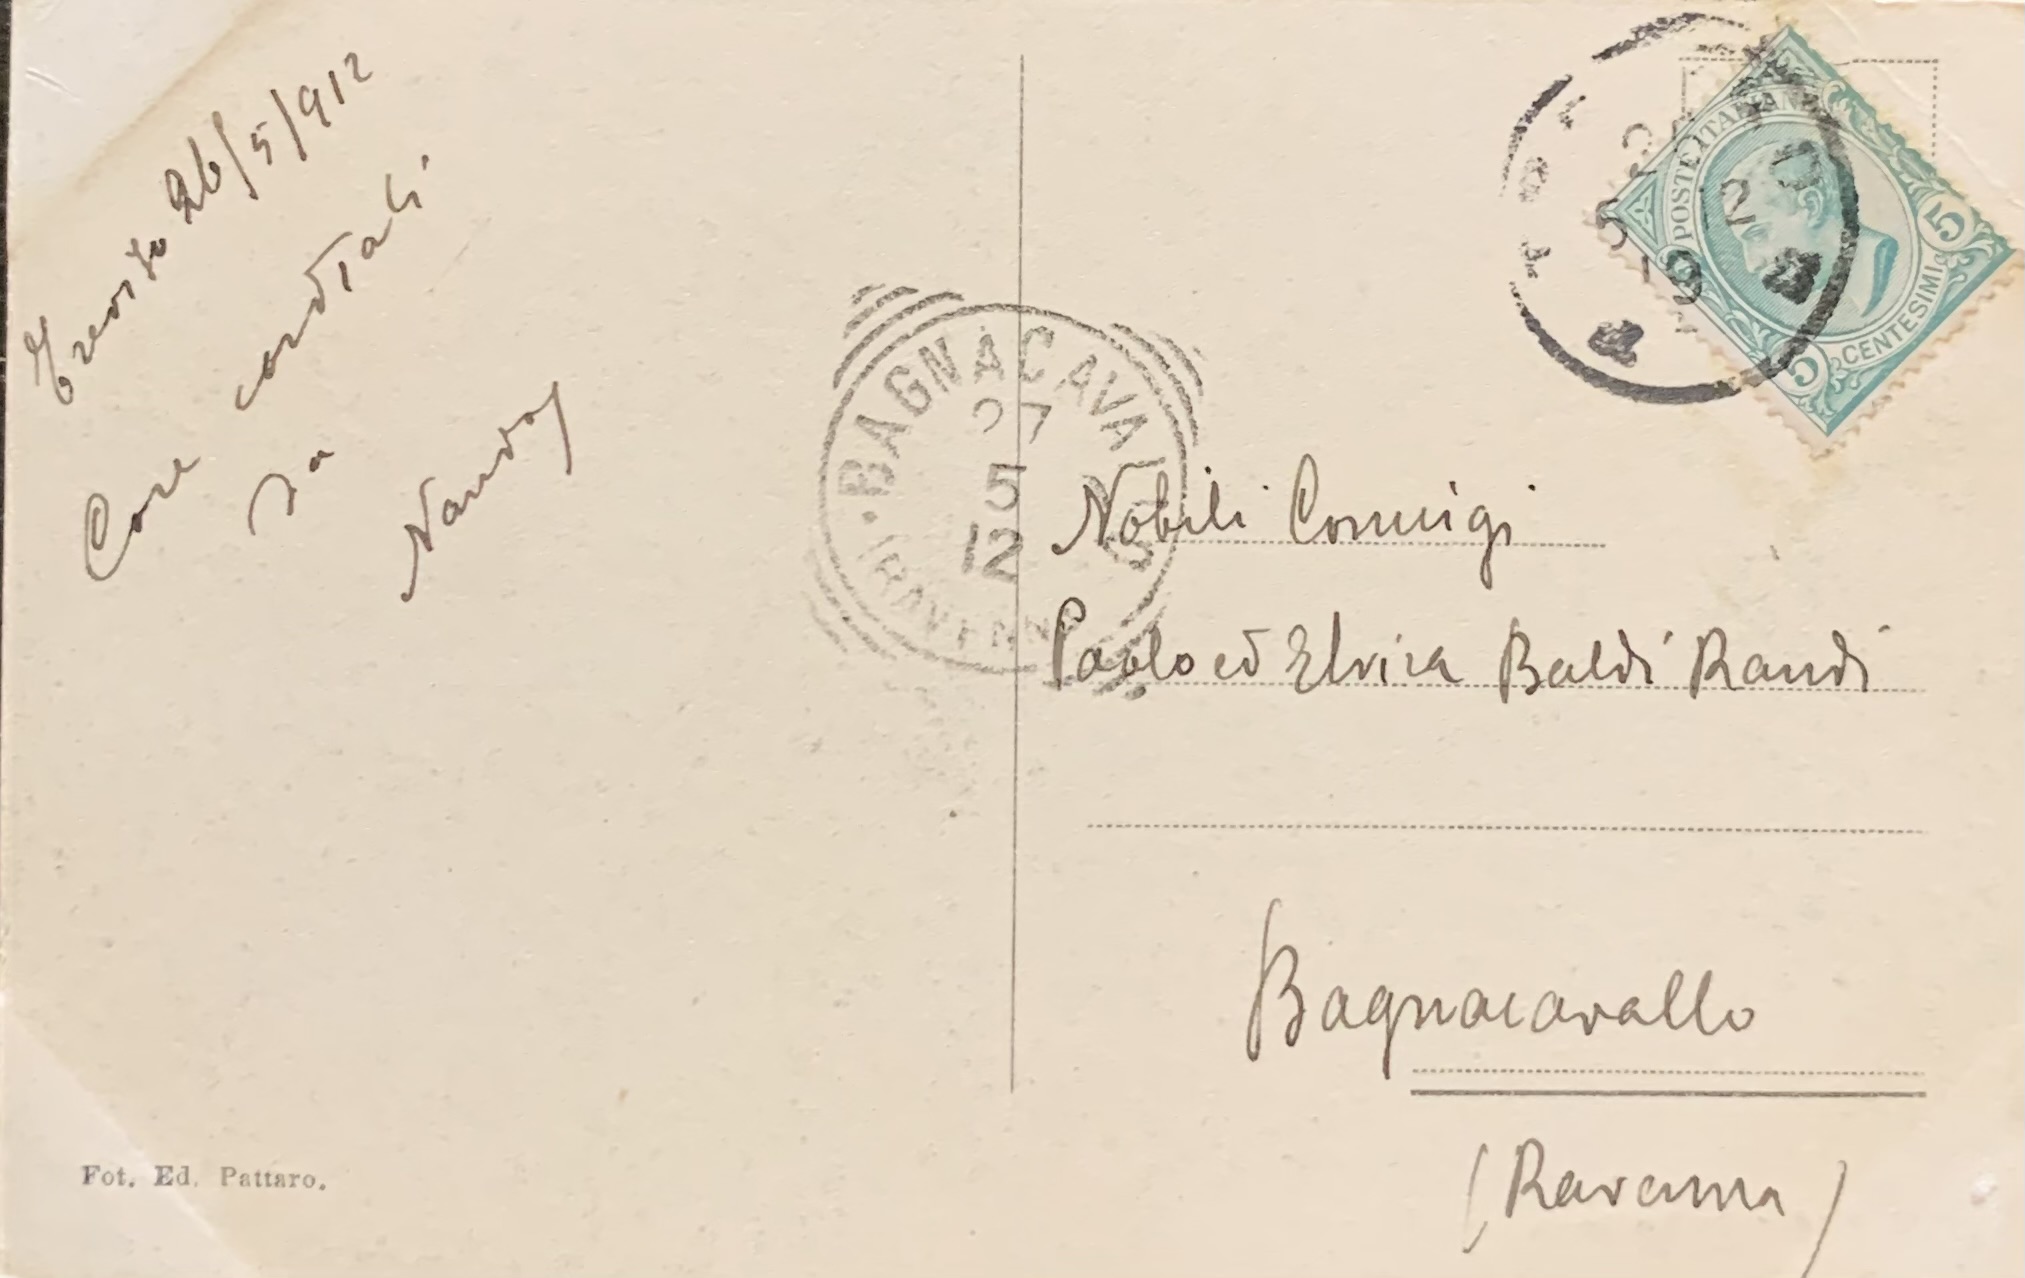 Treviso 26/5/912
Cose cordiali
da
Nando
BAGNACAVALLO
27
5
12
(RAVENNA)
POSTE ITALIANE
5
CENTESIMI
5
Nobili Coniugi
Paolo ed Elvira Baldi Randi
Bagnacavallo
(Ravenna)
Fot. Ed. Pattaro.